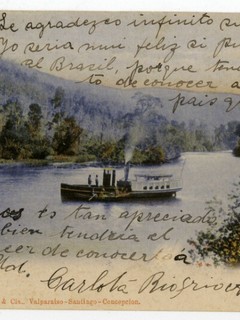 Le agradezco infinito su
Yo seria mui feliz si pu
al Brasil, porque ten
to de conocer a
pais q
es tan apreciado
bien tendria el
cer de conocerla
Carlota
& Cia., Valparaiso-Santiago-Concepcion.